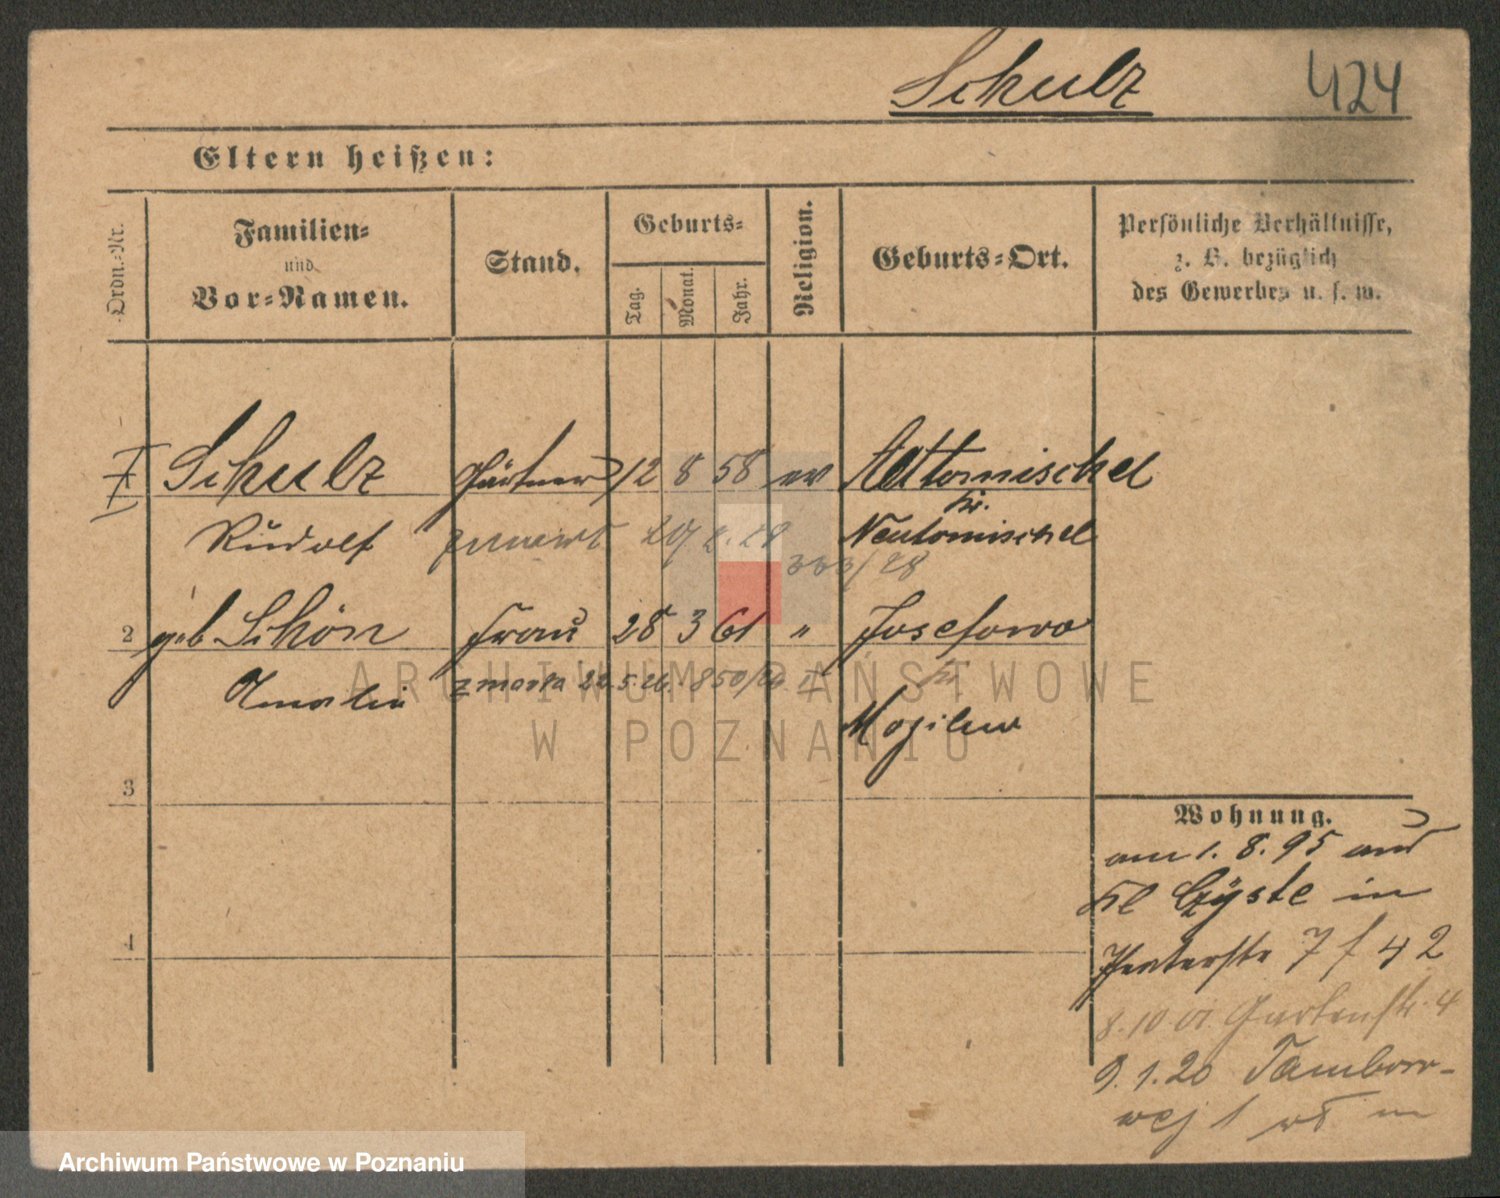 Schulz 424
Eltern heißen:
Ordn.-Nr.
Familien-
und
Vor-Namen.
Stand.
Geburts-
Tag.
Monat.
Jahr.
Religion.
Geburts-Ort.
Persönliche Verhältnisse,
z. B. bezüglich
des Gewerbes u. s. w.
Schulz Gärtner 12 8 58 ev Alttomischel
Kr.
Rudolf Neutomischel
333/28
2 geb Schön Frau 28 3 61 " Josefowo
Amalie zmarła 22.5.26. 850/26 II Kr
Mogilno
3
4
Wohnung.
am 1. 8. 95 aus
in
7 42
8. 10 01. Gartenstr. 4
9. 1. 20 Tambour-
weg 1
ARCHIWUM PAŃSTWOWE
W POZNANIU
Archiwum Państwowe w Poznaniu